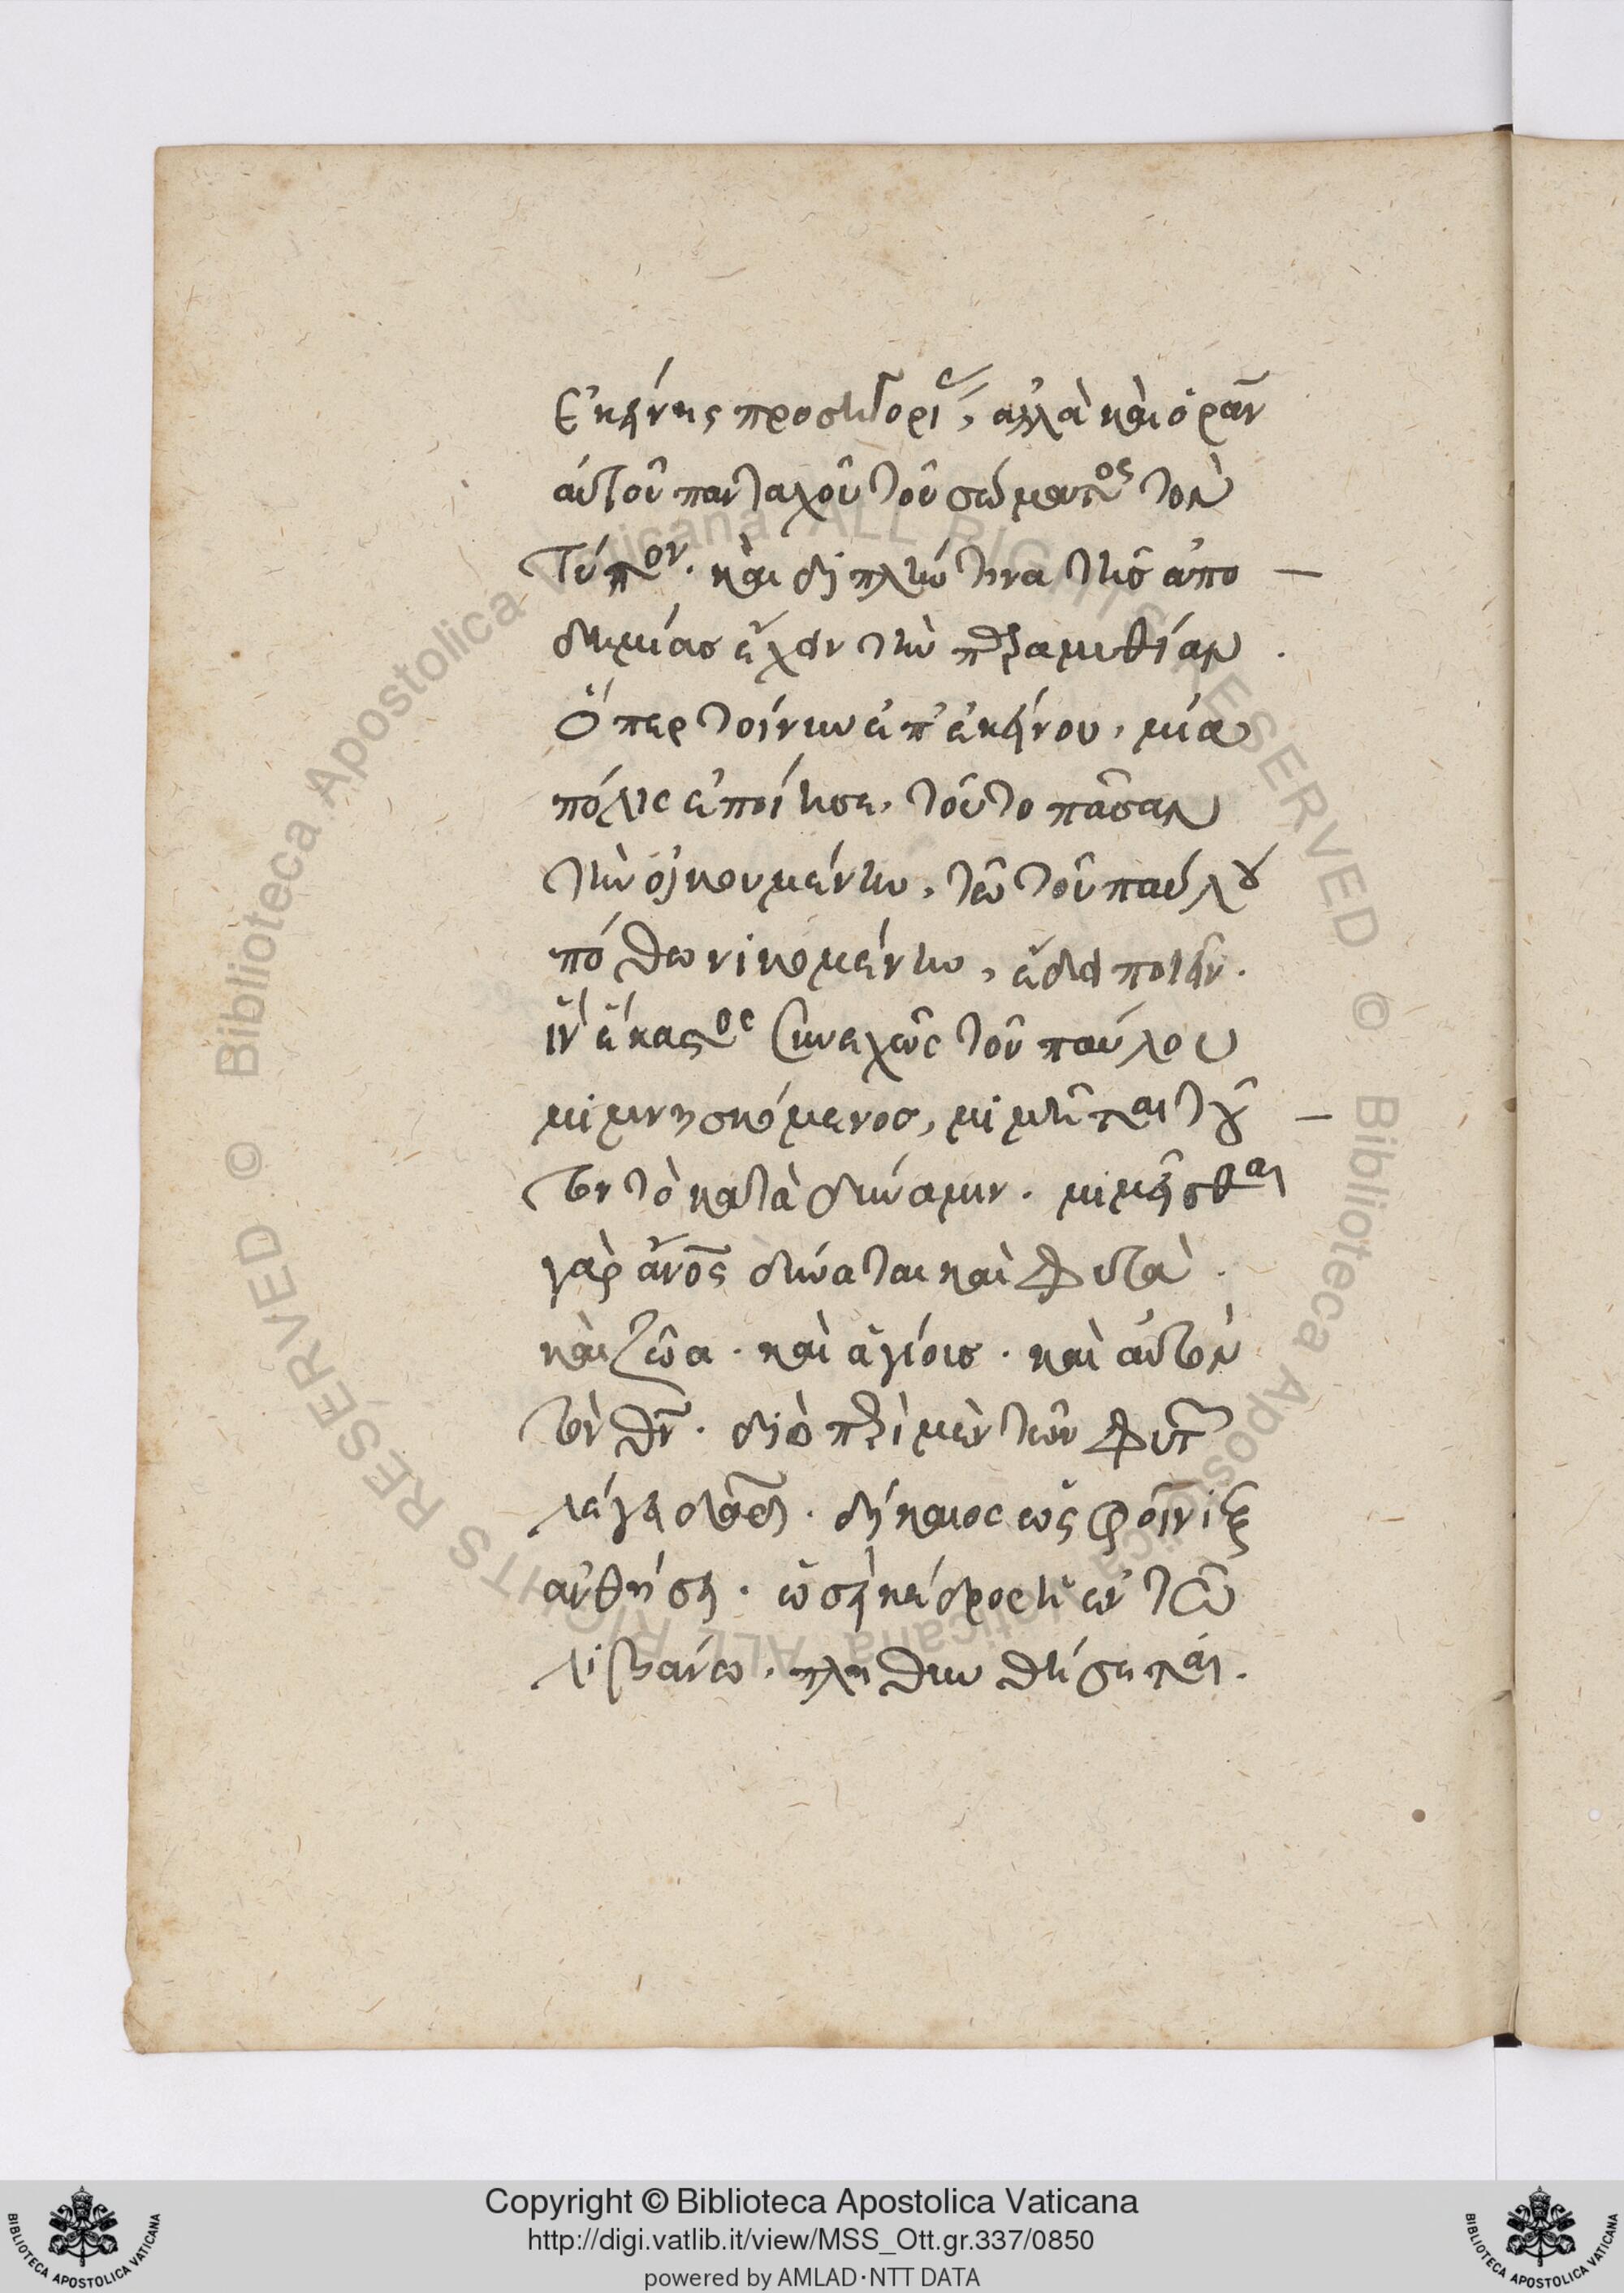 Ἐκείνης προσηγορίας, ἀλλὰ καὶ ὁρᾶν
αὐτοῦ πανταχοῦ τοῦ σώματος τὸν
τύπον. καὶ διπλήν τινα τῆς ἀπο
δημίας ἔχειν τὴν παραμυθίαν.
Ὅπερ τοίνυν ἐπ' ἐκείνου, μία
πόλις ἐποίησε, τοῦτο πᾶσαν
τὴν οἰκουμένην, τῶ τοῦ παύλου
πόθω νικομένην, ἔδει ποιεῖν.
ἵν' ἕκαστος συνεχῶς τοῦ παύλου
μιμνησκόμενος, μιμῆται τοῦ
τον τὸ κατὰ δύναμιν. μιμεῖσθαι
γὰρ ἄνος δύναται καὶ φυτὰ.
καὶ ζῶα. καὶ ἁγίοις. καὶ αὐτὸν
τὸν θν. διὸ περὶ μὲν τῶν φυτ
λέγει δαδ. δίκαιος ὡς φοίνιξ
ἀνθήσει. ὡσεὶ κέδρος ἡ ἐν τῶ
λιβάνω, πληθυνθήσεται.
Copyright © Biblioteca Apostolica Vaticana
http://digi.vatlib.it/view/MSS_Ott.gr.337/0850
powered by AMLAD·NTT DATA
BIBLIOTECA APOSTOLICA VATICANA
BIBLIOTECA APOSTOLICA VATICANA
© Biblioteca Apostolica Vaticana ALL RIGHTS RESERVED
© Biblioteca Apostolica Vaticana ALL RIGHTS RESERVED